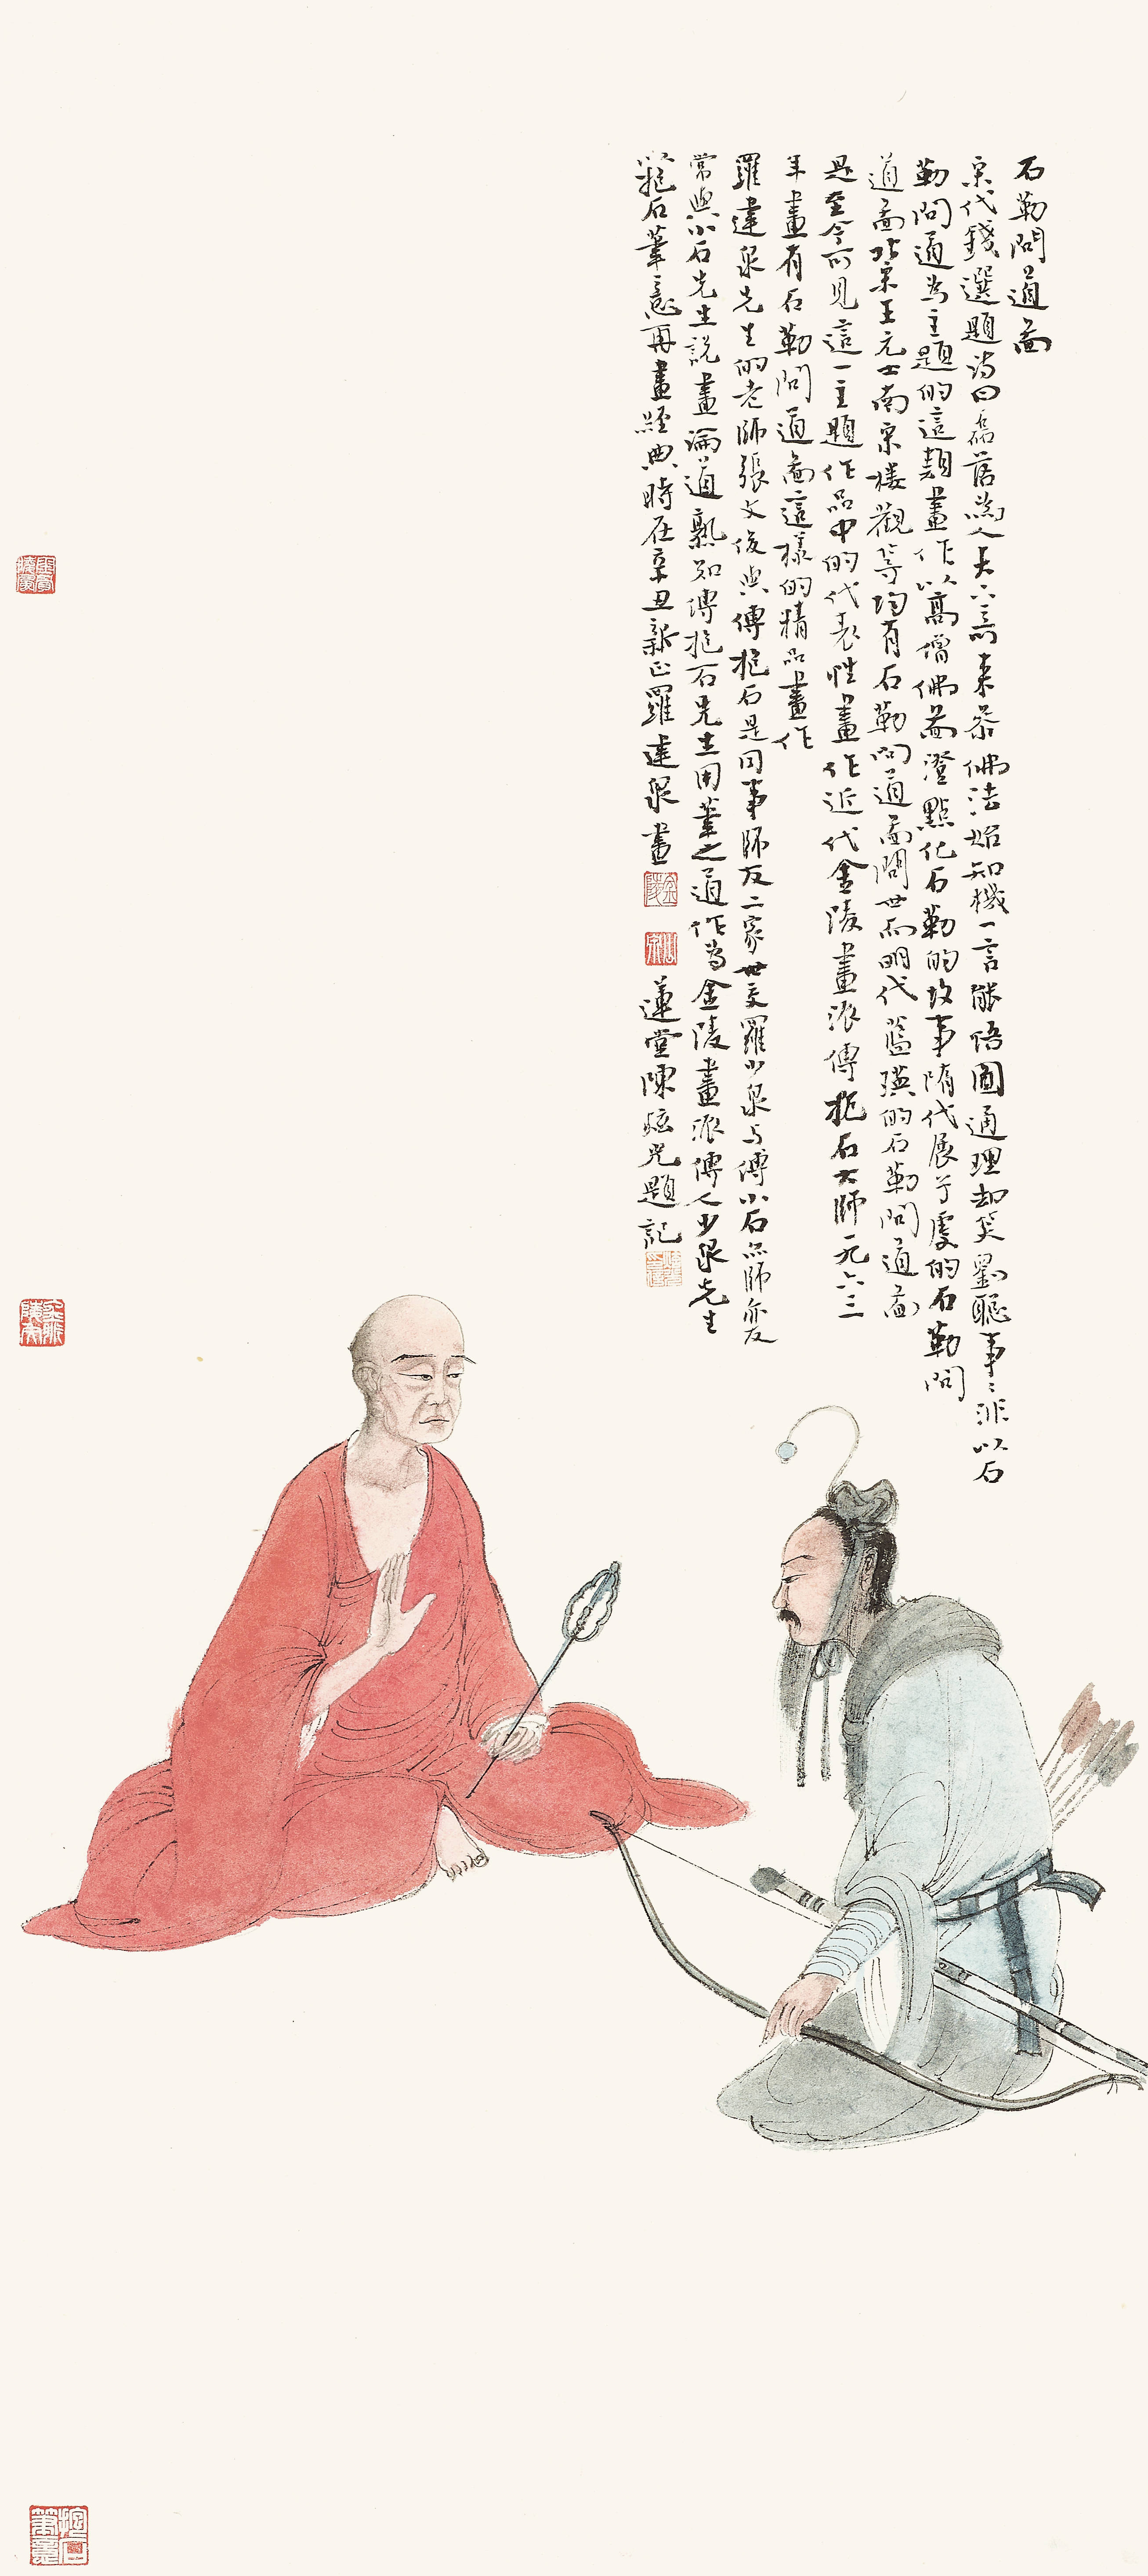 石勒問道圖
宋代錢選題詩曰磊落為人大六高來參佛法始知機一言能悟圓通理却笑劉聰事事非以石
勒問道為主題的這類畫作以高增佛圖澄點化石勒的故事隋代展子虔的石勒問
道圖北宋王元士南宋樓觀等均有石勒問道圖問世而明代藍瑛的石勒問道圖
是至今可見這一主題作品中的代表性畫作近代金陵畫派傅抱石大師一九六三
年畫有石勒問道圖這樣的精品畫作
羅達泉先生的老師張文俊與傅抱石是同事師友二家世交羅少泉与傅小石亦師亦友
常與小石先生説畫論道熟知傅抱石先生用筆之道作為金陵畫派傳人少泉先生
以抱石筆意再畫經典時在辛丑新正羅達泉畫
蓮堂陳炫光題記
抱石筆意